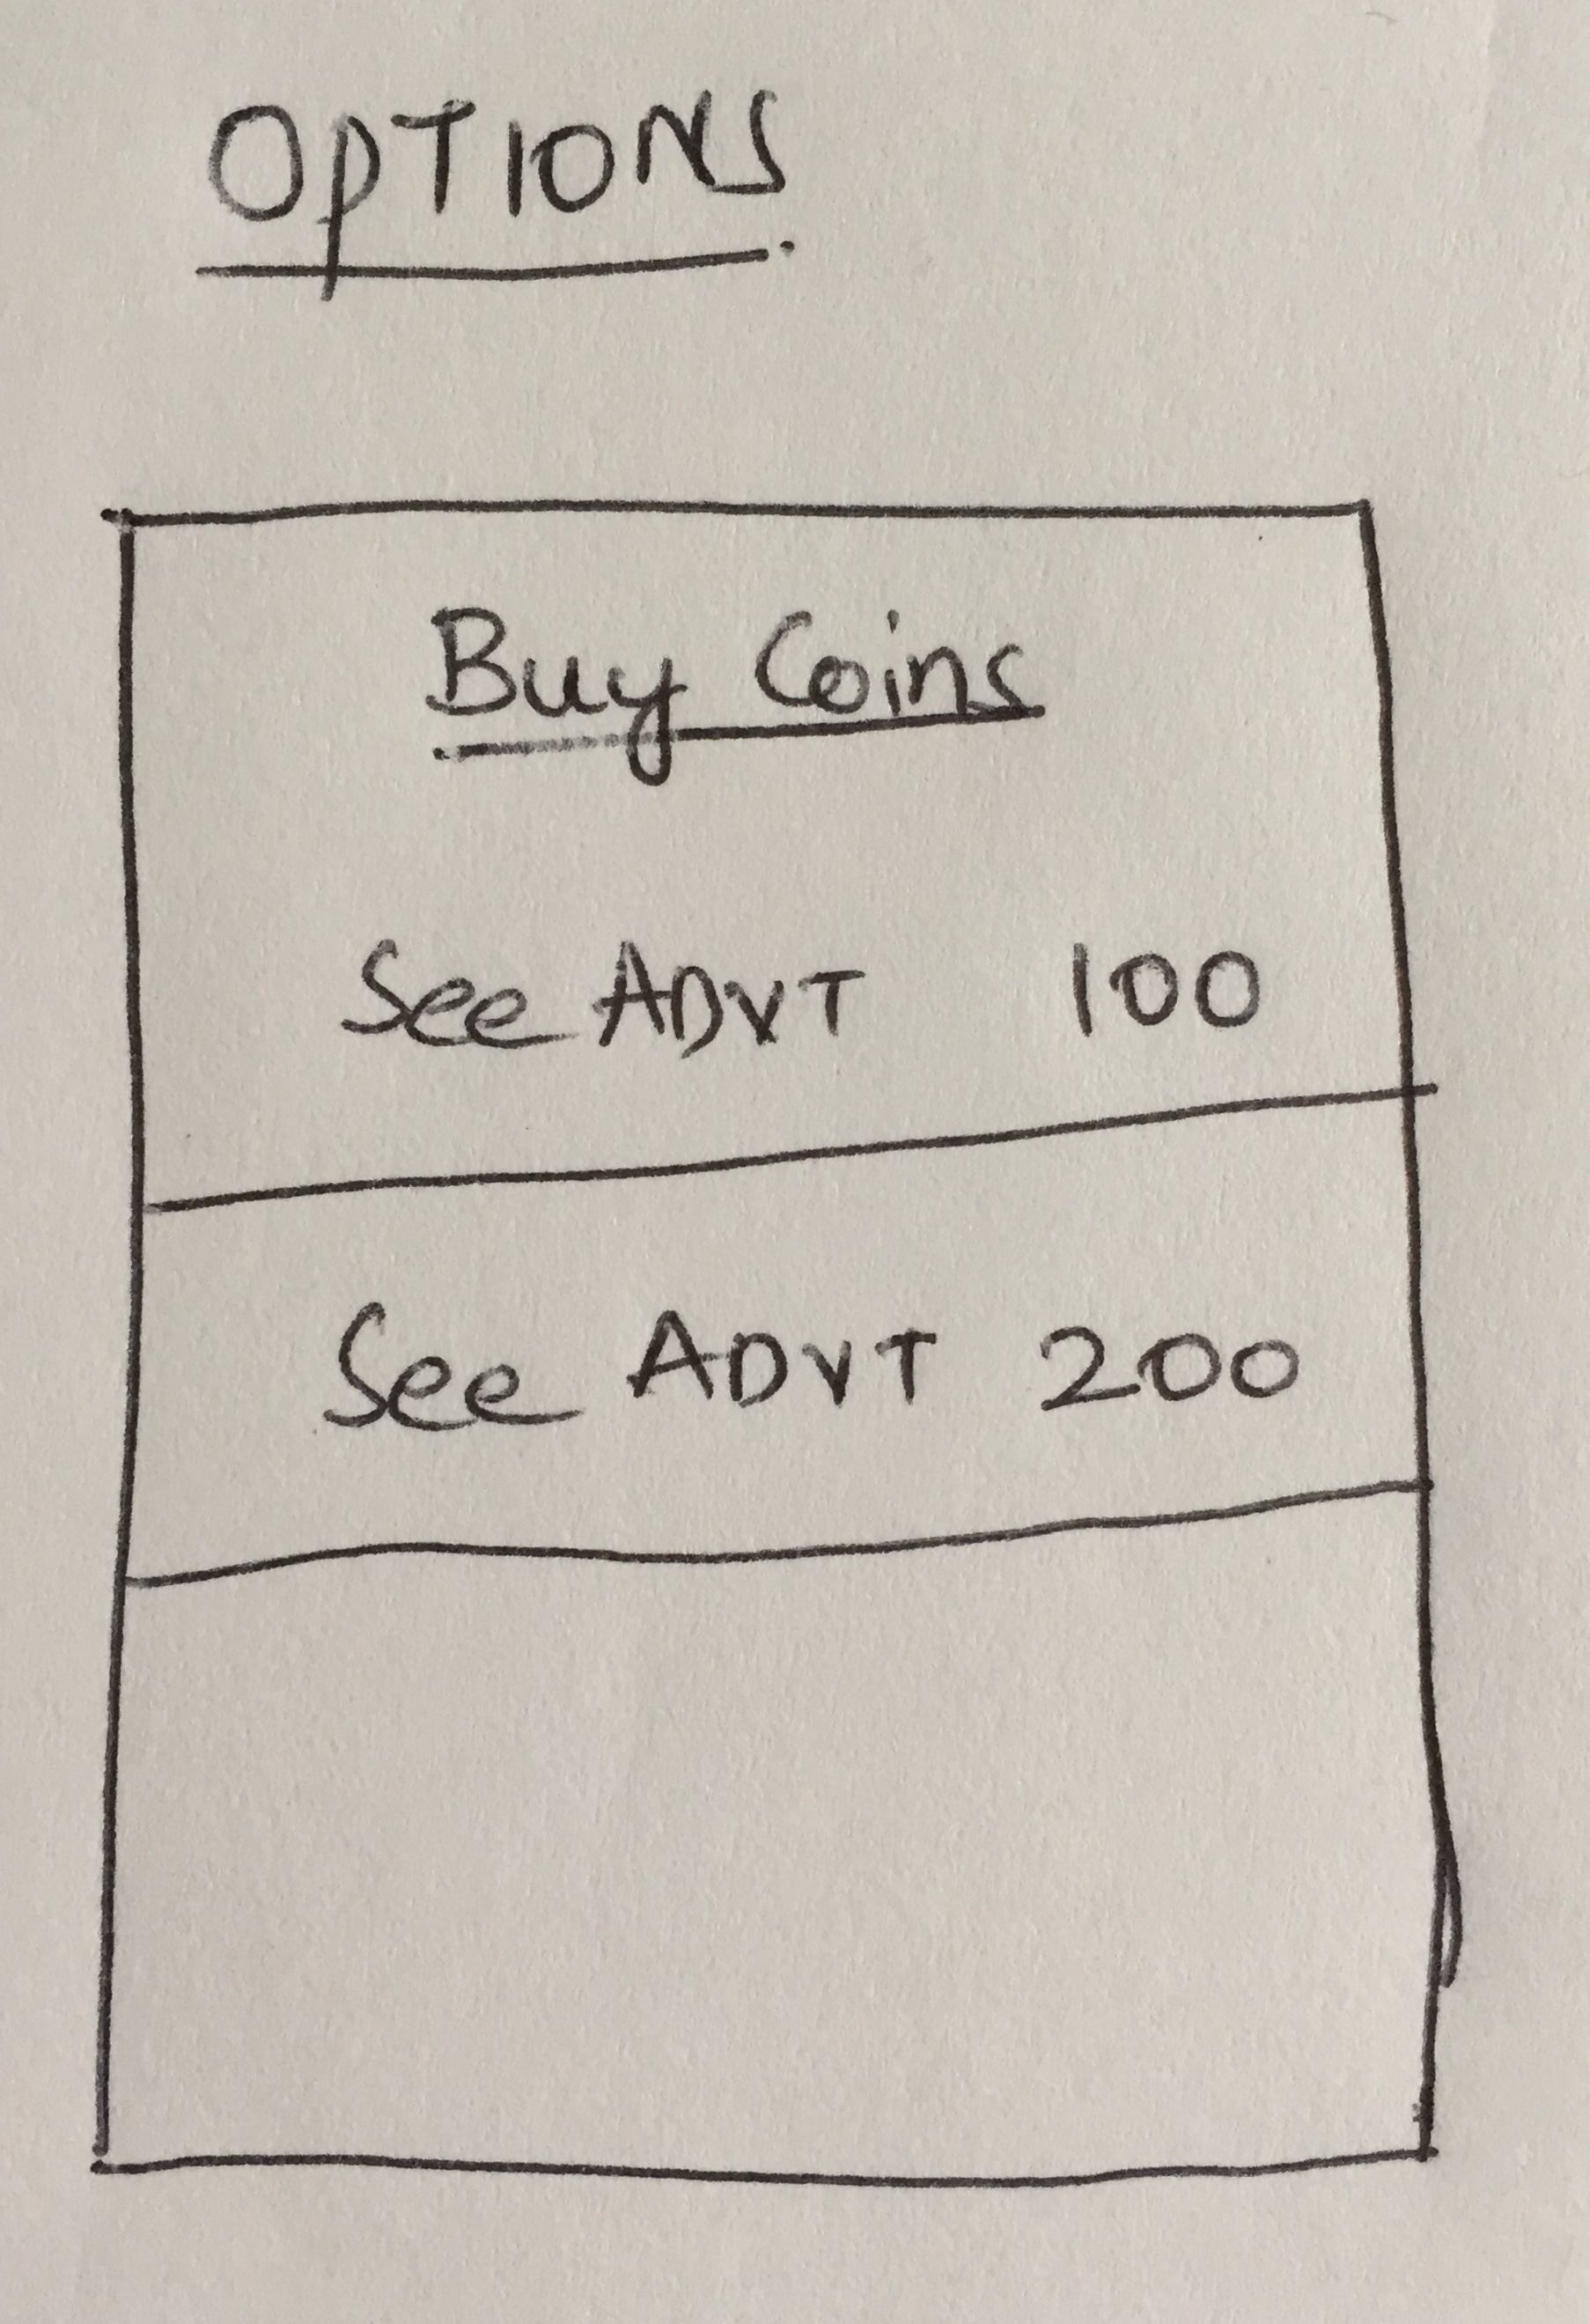 OPTIONS
Buy Coins
See ADVT 100
See ADVT 200